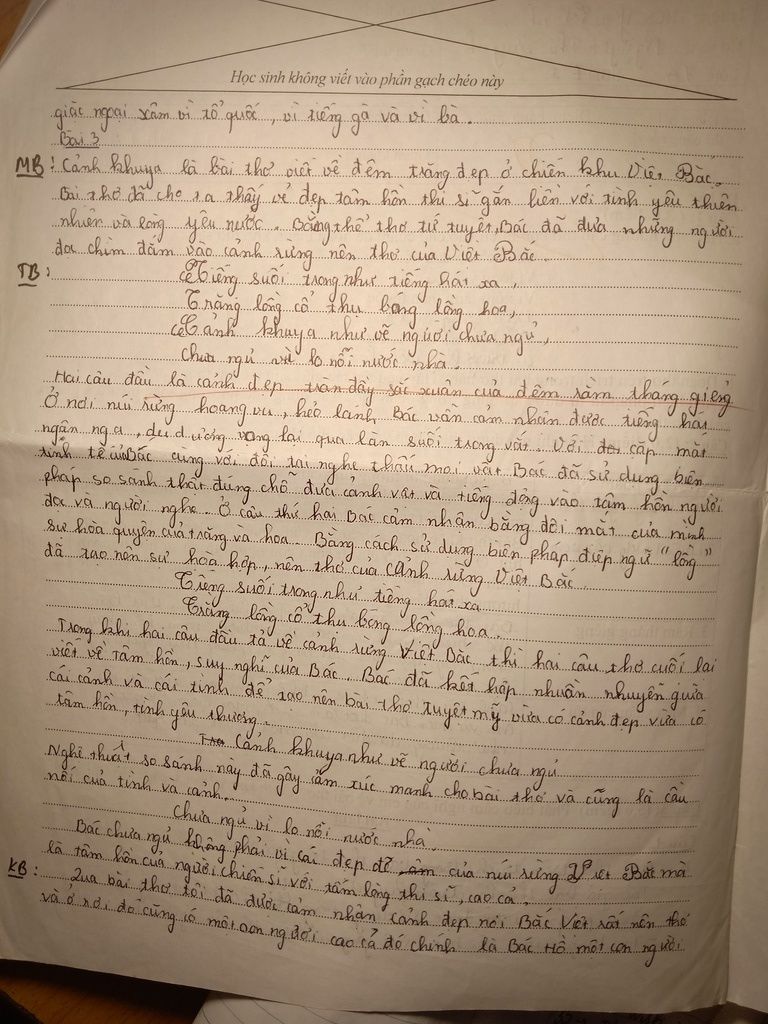 Học sinh không viết vào phần gạch chéo này
giặc ngoại xâm vì tổ quốc, vì tiếng gà và vì bà.
Bài 3
MB: Cảnh khuya là bài thơ viết về đêm trăng đẹp ở chiến khu Việt Bắc.
Bài thơ đã cho ta thấy vẻ đẹp tâm hồn thi sĩ gắn liền với tình yêu thiên
nhiên và lòng yêu nước. Bằng thể thơ tứ tuyệt, Bác đã đưa những người
đọc chìm đắm vào cảnh rừng nên thơ của Việt Bắc.
TB: Tiếng suối trong như tiếng hát xa,
Trăng lồng cổ thụ bóng lồng hoa,
Cảnh khuya như vẽ người chưa ngủ,
Chưa ngủ vì lo nỗi nước nhà.
Hai câu đầu là cảnh đẹp tràn đầy sắc xuân của đêm rằm tháng giêng
Ở nơi núi rừng hoang vu, hẻo lánh, Bác vẫn cảm nhận được tiếng hát
ngân nga, du dương vọng lại qua làn suối trong vắt. Với cặp mắt
tinh tế của Bác cùng với đôi tai nghe thấu mọi vật Bác đã sử dụng biện
pháp so sánh thật đúng chỗ đưa cảnh vật và tiếng động vào tâm hồn người
đọc và người nghe. Ở câu thứ hai Bác cảm nhận bằng đôi mắt của mình
sự hòa quyện của trăng và hoa. Bằng cách sử dụng biện pháp điệp ngữ "lồng"
đã tạo nên sự hoà hợp, nên thơ của cảnh rừng Việt Bắc.
Tiếng suối trong như tiếng hát xa
Trăng lồng cổ thụ bóng lồng hoa.
Trong khi hai câu đầu tả về cảnh rừng Việt Bắc thì hai câu thơ cuối lại
viết về tâm hồn, suy nghĩ của Bác. Bác đã kết hợp nhuần nhuyễn giữa
cái cảnh và cái tình để tạo nên bài thơ tuyệt mỹ vừa có cảnh đẹp vừa có
tâm hồn, tình yêu thương.
Cảnh khuya như vẽ người chưa ngủ
Nghệ thuật so sánh này đã gây cảm xúc mạnh cho bài thơ và cũng là cầu
nối của tình và cảnh.
Chưa ngủ vì lo nỗi nước nhà.
Bác chưa ngủ không phải vì cái đẹp của núi rừng Việt Bắc mà
là tâm hồn của người chiến sĩ với tấm lòng thi sĩ, cao cả.
KB: Qua bài thơ tôi đã được cảm nhận cảnh đẹp nơi Bắc Việt rất nên thơ
và ở nơi đó cũng có một con người cao cả đó chính là Bác Hồ một con người